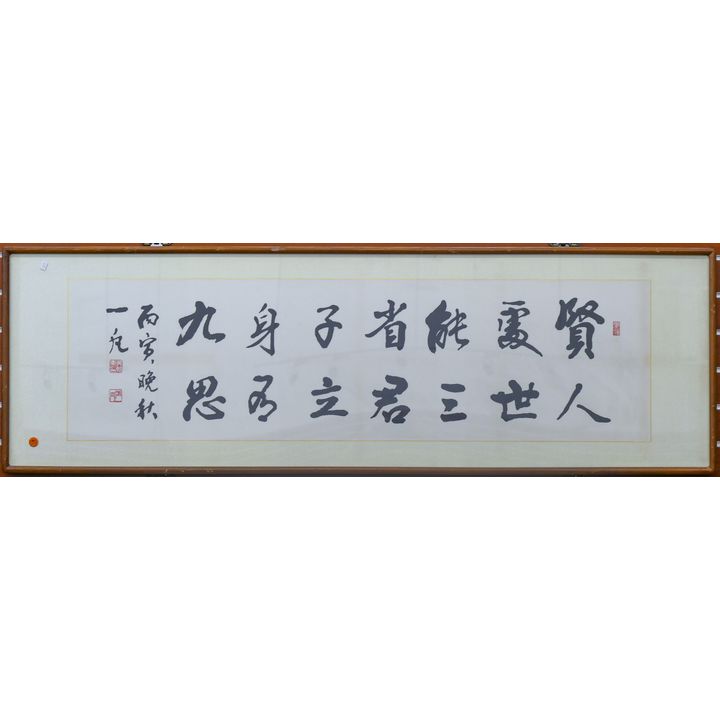 賢人
處世
能三
省君
子立
身有
九思
丙寅晚秋
一凡